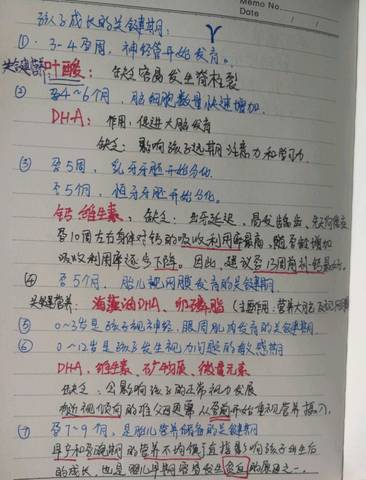 Memo No.
Date
孩子成长的关键期:
①. 3-4孕周, 神经管开始发育。
关键营养 叶酸: 缺乏容易发生脊柱裂
② 孕4~6个月, 脑细胞数量快速增加.
DHA: 作用: 促进大脑发育
缺乏: 影响孩子远期注意力和学习力.
③ 孕5周, 乳牙牙胚开始分化.
孕5个月, 恒牙牙胚开始分化。
钙 维生素: 缺乏: 出牙延迟, 易发龋齿
孕10周左右身体对钙的吸收利用率最高, 随孕龄增加
吸收利用率逐步下降。因此, 建议孕13周前补钙最好。
④ 孕5个月, 胎儿视网膜发育的关键期
关键营养: 海藻油DHA、卵磷脂 (主要作用: 营养大脑及视网膜
⑤ 0~3岁是孩子视神经, 眼周肌肉发育的关键期
⑥ 0~12岁是孩子发生视力问题的敏感期
DHA、维生素、矿物质、微量元素
缺乏: 会影响孩子的正常视力发展
有近视倾向的推公因素需从孕前开始重视营养摄入.
⑦ 孕7~9个月, 是胎儿营养储备的关键期
早产和孕晚期的营养不均衡会直接影响孩子出生后
的成长, 也是胎儿早期容易发生贫血的原因之一.